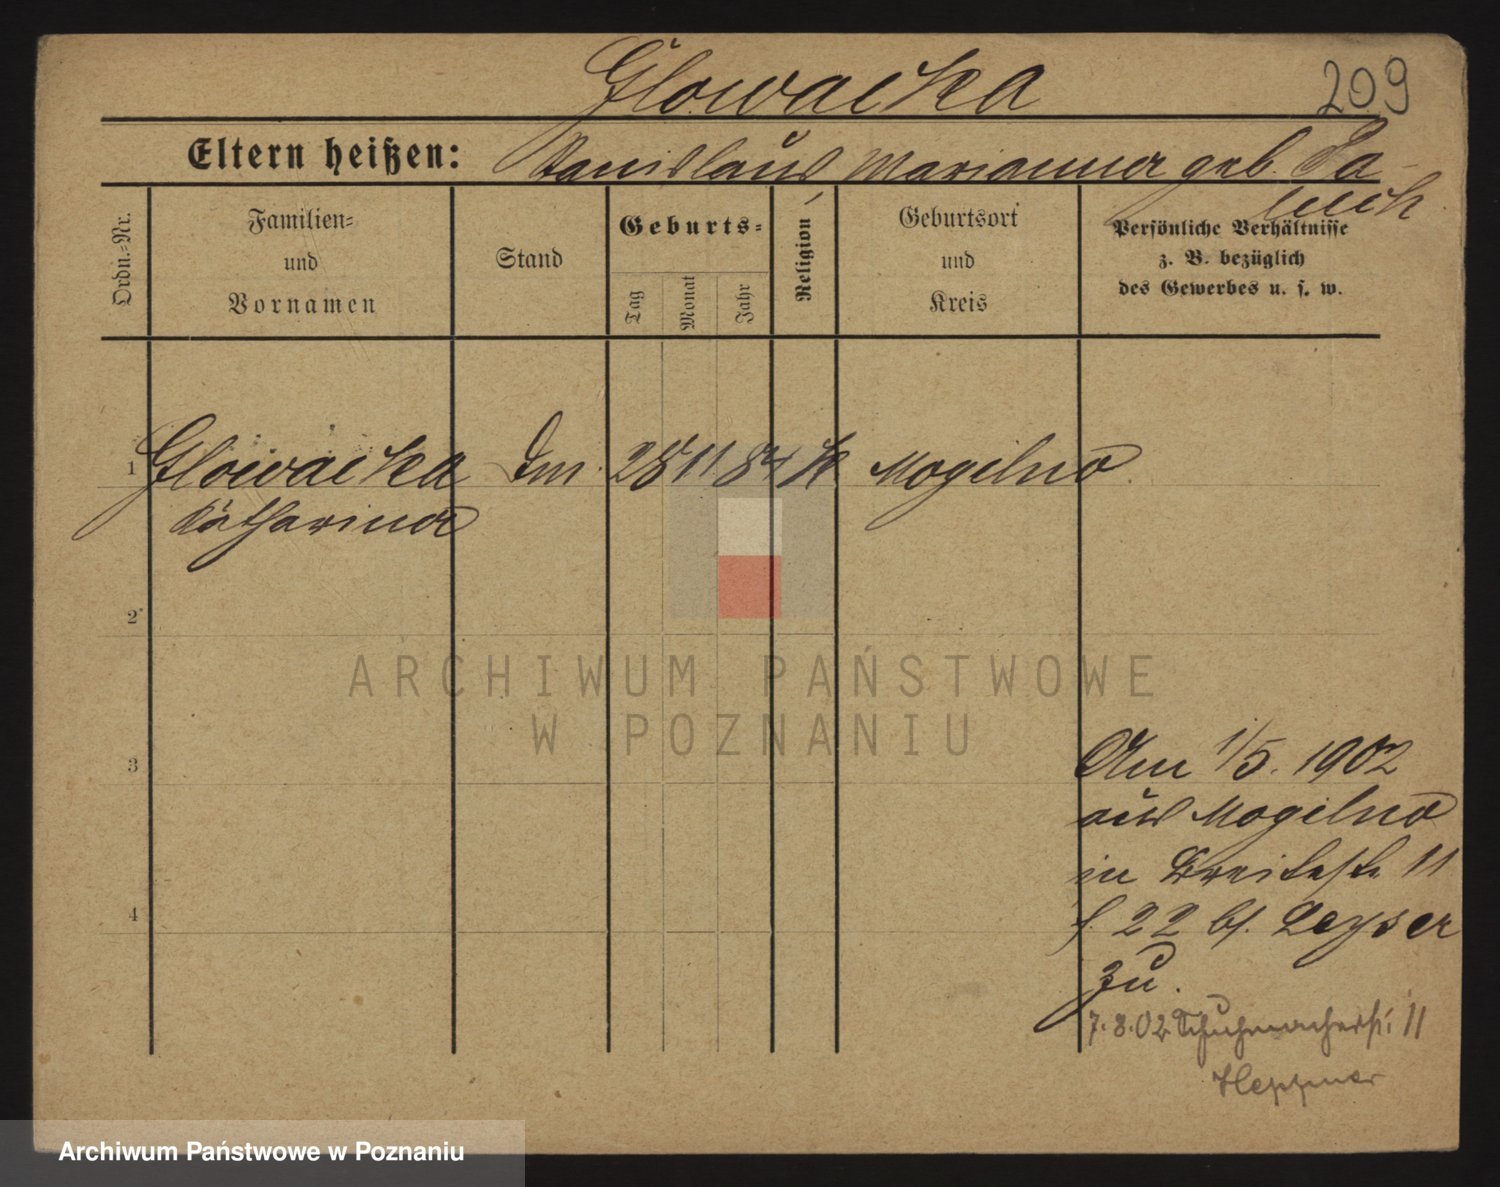 Glowacka
209
Eltern heißen: Stanislaus Marianna geb. Ja-
Ordn.-Nr.
Familien-
und
Vornamen
Stand
Geburts-
Tag
Monat
Jahr
Religion
Geburtsort
und
Kreis
Persönliche Verhältnisse
z. B. bezüglich
des Gewerbes u. s. w.
1 Glowacka Dm. 28 11 84 k Mogilno
Katharina
2
3
4
Am 1/5. 1902
aus Mogilno
in Breitestr. 11
b/. Leyser
zu.
7.8.02 Schuhmacherstr. 11
Heppner
ARCHIWUM PAŃSTWOWE
W POZNANIU
Archiwum Państwowe w Poznaniu